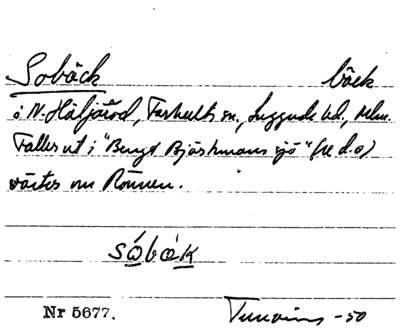 Sobäck bäck
i N. Häljaröd, Farhults sn., Luggude hd., Mlm.
Faller ut i "Bengt Björkmans sjö" (se d.o)
väster om Rönnen.
sóbäk
Nr 5677. -50